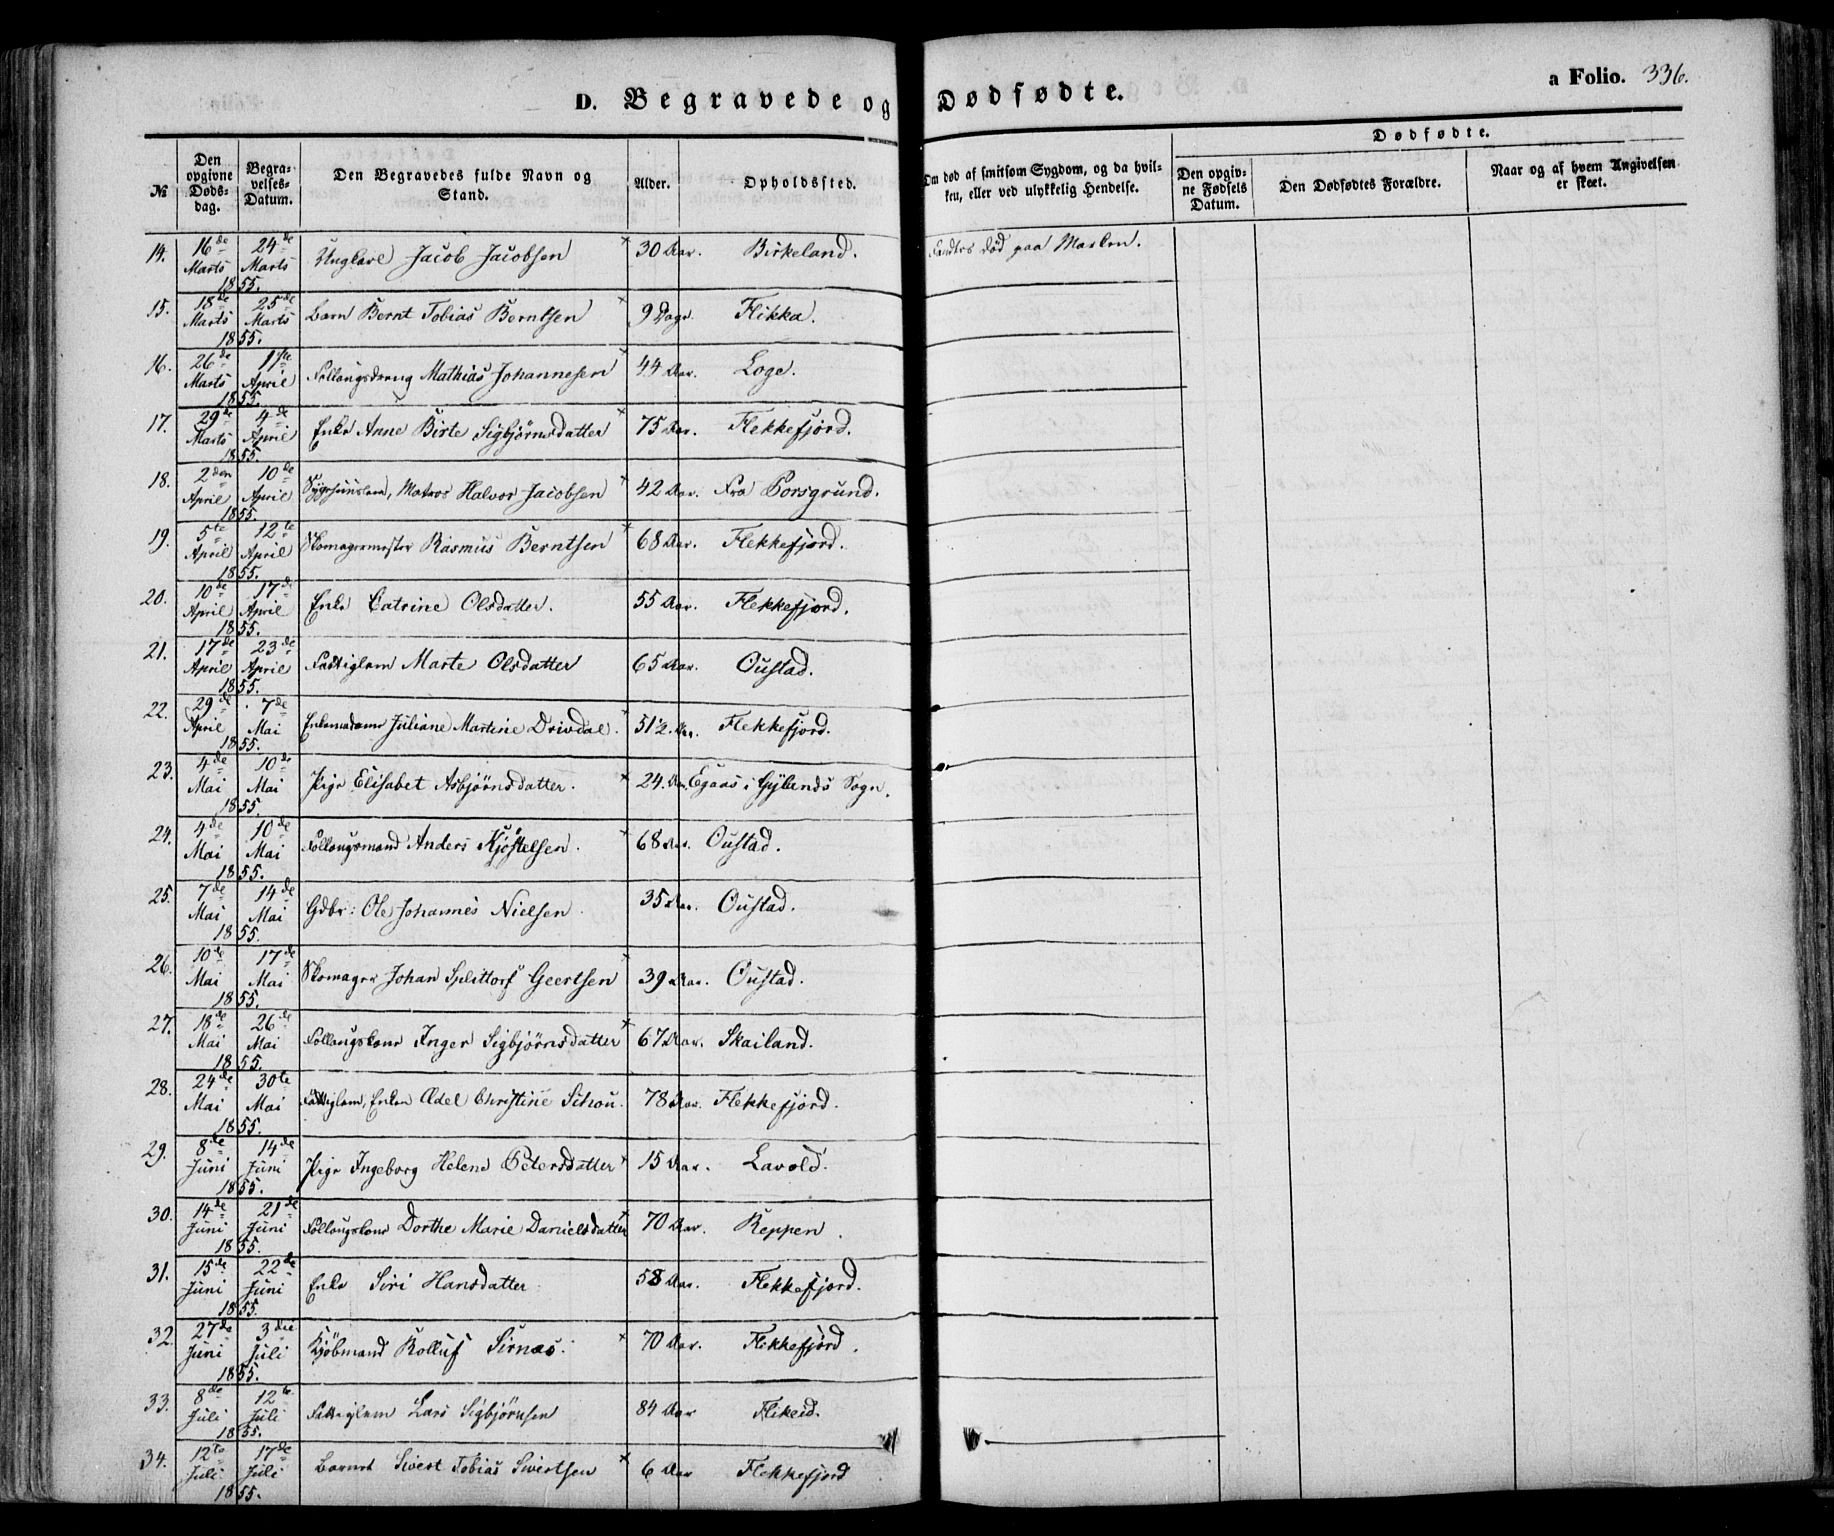 D. Begravede og Dødfødte.
a Folio. 336.
№ Den opgivne Døds-dag. Begra-velses-Datum. Den Begravedes fulde Navn og Stand. Alder. Opholdssted. Om død af smitsom Sygdom, og da hvil-ken, eller ved ulykkelig Hendelse. Dødfødte. Den opgiv-ne Fødsels Datum. Den Dødfødtes Forældre. Naar og af hvem Angivelsen er skeet.
14. 16de Marts 24de Marts 1855. Ungkarl Jacob Jacobsen 30 Aar. Birkeland. Fandtes død paa Marken.
15. 18de Marts 25de Marts 1855. Barn Bernt Tobias Berntsen 9 Dage Flikka.
16. 26de Marts 1ste April 1855. Mathias Johannesen 44 Aar. Loge.
17. 29de Marts 4de April 1855. Enke Anne Birte Sigbjørnsdatter 75 Aar. Flekkefjord.
18. 2den April 10de April 1855. Matros Halvor Jacobsen 42 Aar. Fra Porsgrund.
19. 5te April 12te April 1855. Skomagermester Rasmus Berntsen 68 Aar. Flekkefjord.
20. 10de April 17de April 1855. Enke Catrine Olsdatter. 55 Aar. Flekkefjord.
21. 17de April 23de April 1855. Fattiglem Marte Olsdatter 65 Aar. Oustad.
22. 29de April 7de Mai 1855. Enkemadame Juliane Martine Drivdal. 51½ Aar. Flekkefjord.
23. 4de Mai 10de Mai 1855. Pige Elisabet Asbjørnsdatter. 24 Aar. Egaas i Gylands Sogn.
24. 4de Mai 10de Mai 1855. Follaugsmand Anders Kjøstelsen. 68 Aar. Oustad.
25. 7de Mai 14de Mai 1855. Gdbr: Ole Johannes Nielsen 35 Aar. Oustad.
26. 10de Mai 17de Mai 1855. Skomager Johan Splittorf Geertsen 39 Aar. Oustad.
27. 18de Mai 26de Mai 1855. Follaugskone Inger Sigbjørnsdatter 67 Aar. Skailand.
28. 24de Mai 30te Mai 1855. Fattiglem, Enken Ædel Christine Schou. 78 Aar. Flekkefjord.
29. 8de Juni 14de Juni 1855. Pige Ingeborg Helene Petersdatter 15 Aar. Lavold.
30. 14de Juni 21de Juni 1855. Follaugskone Dorthe Marie Danielsdatter 70 Aar. Reppen.
31. 15de Juni 22de Juni 1855. Enke Siri Hansdatter 58 Aar. Flekkefjord.
32. 27de Juni 3die Juli 1855. Kjøbmand Rolluf Sirnæs. 70 Aar. Flekkefjord.
33. 8de Juli 12te Juli 1855. Fattiglem Lars Sigbjørnsen 84 Aar Flikeid.
34. 12te Juli 17de Juli 1855. Barnet Sivert Tobias Sivertsen 6 Aar Flekkefjord